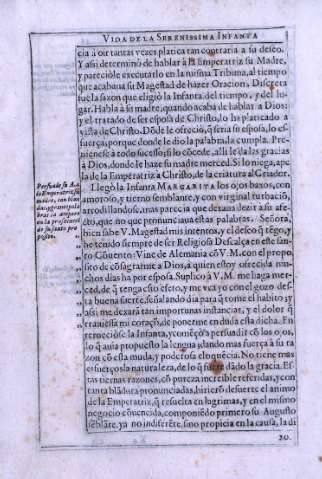 VIDA DE LA SERENISSIMA INFANTA
cia à oir tantas vezes platica tan contraria a su deseo.
Y assi determinò de hablar à la Emperatriz su Madre,
y pareciòle executarlo en la misma Tribuna, al tiempo
que acabaua su Magestad de hazer Oracion. Discreta
fue la sazon que eligiò la Infanta, del tiempo, y del lu-
gar. Habla à su madre, quando acaba de hablar a Dios:
y el tratado de ser esposa de Christo, lo ha platicado a
vista de Christo. Dõde le ofreciò, q̃ seria su esposa, lo es-
fuerça; porque donde le dio la palabra, la cumpla. Pre-
uienese à todo sucesso; si lo cõcede, alli le da las gracias
à Dios, donde le haze su madre merced. Si lo niega, ape-
la de la Emperatriz à Christo, de la criatura al Criador.
Llegò la Infanta MARGARITA los ojos baxos, con
amoroso, y tierno semblante, y con virginal turbaciõ,
arrodillandose, tras parecia que detuuo dezir asu afe-
cto, que no que pronunciaua estas palabras. Señora,
bien sabe V. Magestad mis intentos, y el deseo q̃ tẽgo, y
he tenido siempre de ser Religiosa Descalça en este san-
to Cõuento: Vine de Alemania cõ V. M. con el propo-
sito de cõsagrarme a Dios, à quien estoy ofrecida mu-
chos dias ha por esposa. Suplico à V. M. me haga mer-
ced, de q̃ tenga esto efeto, y me vea yo con el gozo des-
ta buena suerte, señalando dia para q̃ tome el habito: y
assi me dexarà tan importunas instancias, y el dolor q̃
trauiessa mi coraçõ, de ponerme en duda esta dicha. En
terneciòse la Infanta, y començò a persuadir cõ los ojos,
lo q̃ auia propuesto la lengua; dando mas fuerça à su ra
zon cõ esta muda, y poderosa eloquẽcia. No tiene mas
esfuerços la naturaleza, de lo q̃ fuere dãdo la gracia. Es-
tas tiernas razones, cõ pureza increible referidas, y con
tanta blãdura pronunciadas, hirierõ de suerte el animo
de la Emperatriz, q̃ resuelta en lagrimas, y en el mismo
negocio cõuencida, componiẽdo primero su Augusto
sẽblãte, ya no indiferẽte, sino propicia en la causa, la di
xo.
Persuade su A.
la Emperatriz su
madre, con blan
das
bras la ampare
en la prosecucion
de su santo pro
posito.